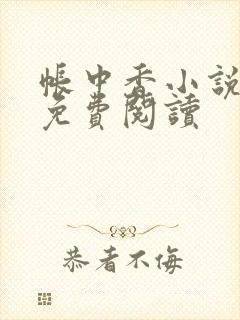 帳中香小說
免費閱讀
恭者不侮